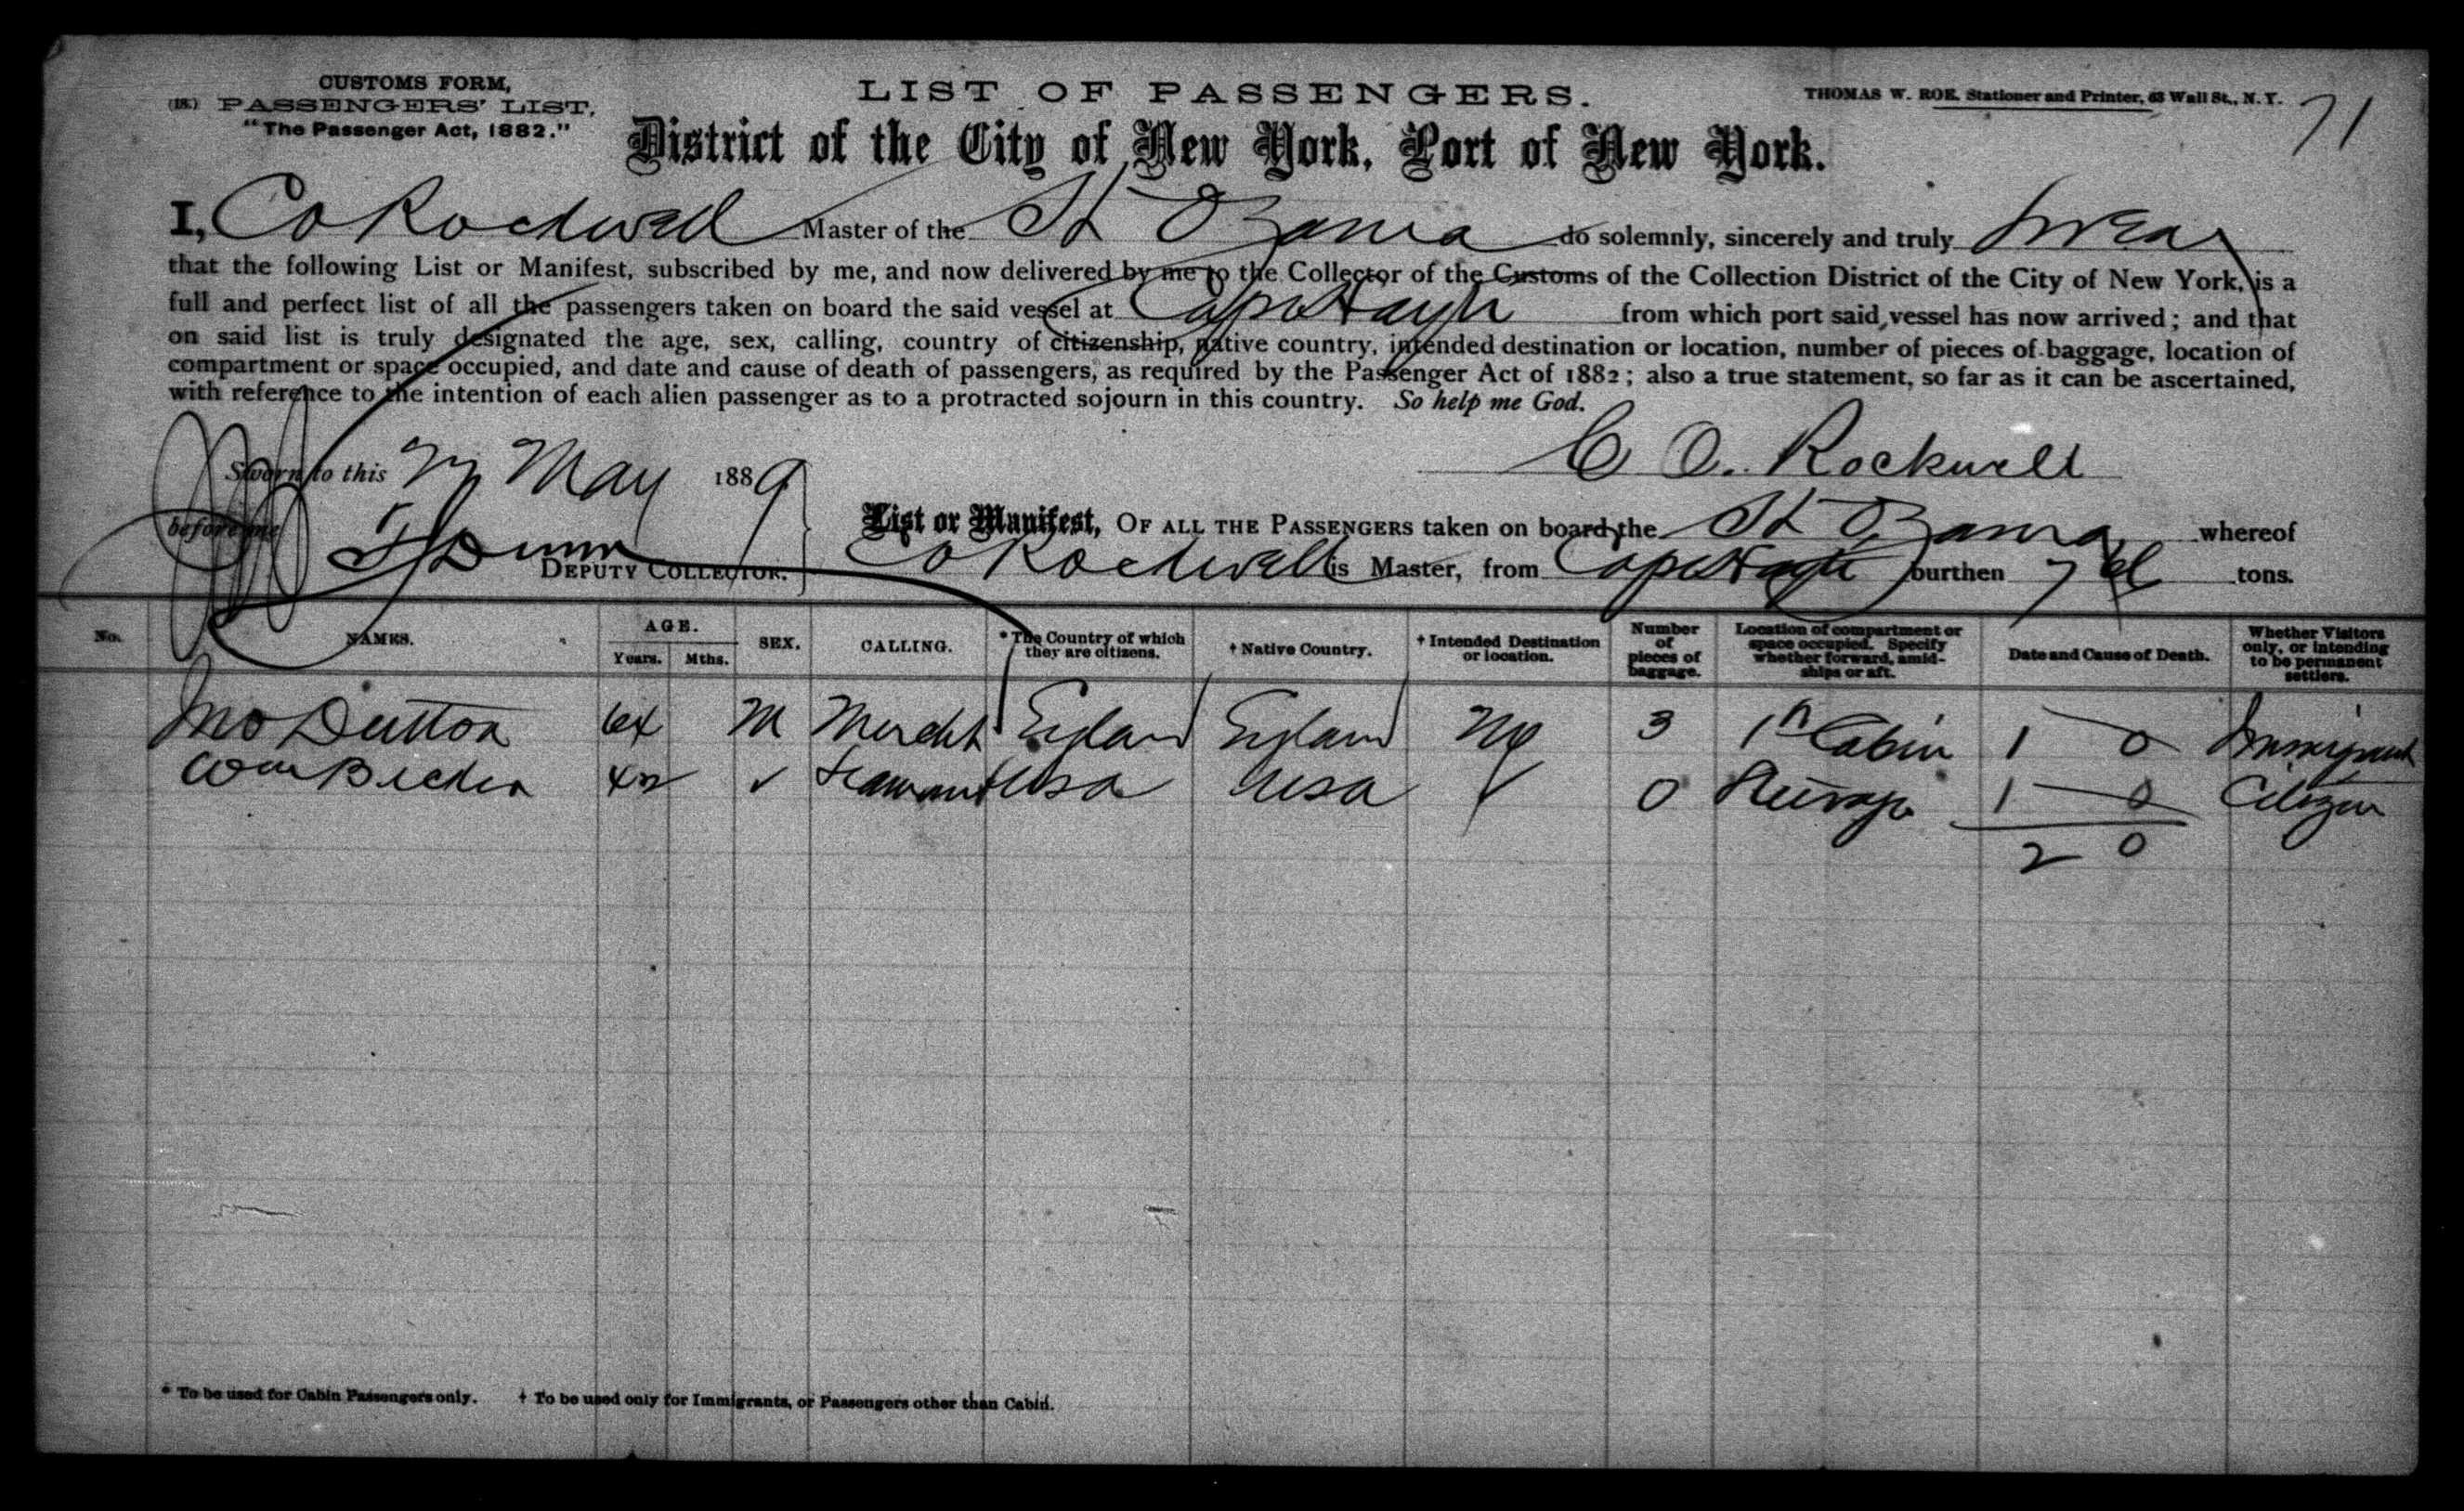 CUSTOMS FORM,
(18.) PASSENGERS' LIST,
"The Passenger Act, 1882."
LIST OF PASSENGERS.
THOMAS W. ROE, Stationer and Printer, 63 Wall St., N. Y.
71
District of the City of New York, Port of New York.
I, C O Rockwell Master of the St Ozama do solemnly, sincerely and truly swear
that the following List or Manifest, subscribed by me, and now delivered by me to the Collector of the Customs of the Collection District of the City of New York, is a
full and perfect list of all the passengers taken on board the said vessel at Cape Hayti from which port said vessel has now arrived; and that
on said list is truly designated the age, sex, calling, country of citizenship, native country, intended destination or location, number of pieces of baggage, location of
compartment or space occupied, and date and cause of death of passengers, as required by the Passenger Act of 1882; also a true statement, so far as it can be ascertained,
with reference to the intention of each alien passenger as to a protracted sojourn in this country. So help me God.
C O. Rockwell
Sworn to this May 1889
before me
Dunn
DEPUTY COLLECTOR.
List or Manifest, OF ALL THE PASSENGERS taken on board the St Ozama whereof
C O Rockwell is Master, from Cape Hayti burthen tons.
No. NAMES. AGE. Years. Mths. SEX. CALLING. * The Country of which they are citizens. † Native Country. † Intended Destination or location. Number of pieces of baggage. Location of compartment or space occupied. Specify whether forward, amidships or aft. Date and Cause of Death. Whether Visitors only, or intending to be permanent settlers.
Jno Dutton 64 M Mercht England England NY 3 1st Cabin 1 0 Immigrant
Wm 42 ✓ Seaman USA USA ✓ 0 Steerage 1 0 Citizen
2 0
* To be used for Cabin Passengers only. † To be used only for Immigrants, or Passengers other than Cabin.